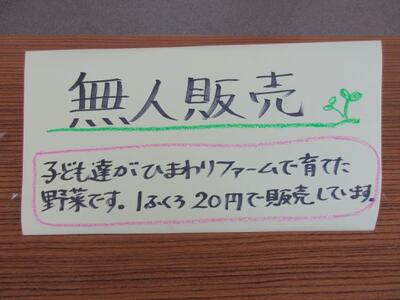 無人販売
子ども達がひまわりファームで育てた
野菜です。1ふくろ20円で販売しています。